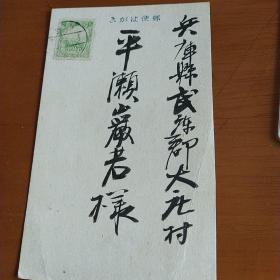 郵便はがき
兵庫縣武庫郡大庄村
平瀬巌君様